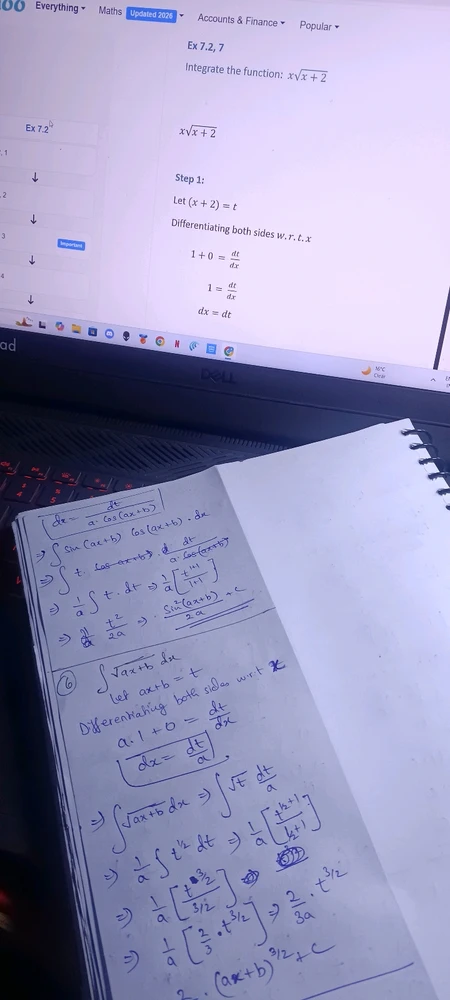 Everything Maths Updated 2026 Accounts & Finance Popular
Ex 7.2, 7
Integrate the function: x√(x + 2)
Ex 7.2
x√(x + 2)
, 1
Step 1:
Let (x + 2) = t
, 2
Differentiating both sides w.r.t.x
3
Important
1 + 0 = dt/dx
4
1 = dt/dx
dx = dt
16°C
Clear
DELL
dx = dt / a. cos(ax+b)
⇒ ∫ sin(ax+b) cos(ax+b) . dx
⇒ ∫ t. cos(ax+b). dt / a. cos(ax+b)
⇒ 1/a ∫ t. dt ⇒ 1/a [t^(1+1) / 1+1]
⇒ t²/2a ⇒ sin²(ax+b)/2a + c
6 ∫ √(ax+b) dx
Let ax+b = t
Differentiating both sides w.r.t x
a.1+0 = dt/dx
dx = dt/a
⇒ ∫ √(ax+b) dx ⇒ ∫ √t dt/a
⇒ 1/a ∫ t^(1/2) dt ⇒ 1/a [t^(1/2+1) / 1/2+1]
⇒ 1/a [t^(3/2) / 3/2]
⇒ 1/a [2/3 . t^(3/2)] ⇒ 2/3a . t^(3/2)
2 . (ax+b)^(3/2) + c